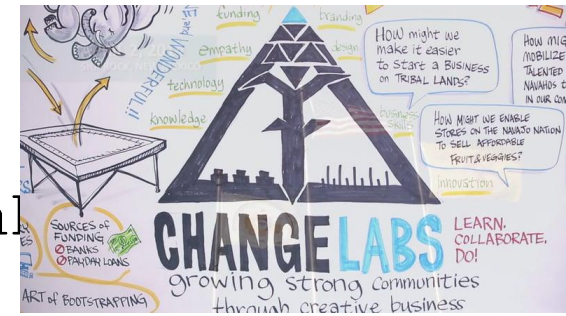 funding
branding
empathy
design
technology
knowledge
business
skills
innovation
and WONDERFUL!!
HOW might we
make it easier
to Start a BUSINESS
on TRIBAL LANDS?
HOW MIG
MOBILIZE
TALENTED
NAVAJOS t
IN OUR COM
HOW MIGHT WE ENABLE
STORES ON THE NAVAJO NATION
TO SELL AFFORDABLE
FRUIT & VEGGIES?
SOURCES of
FUNDING
BANKS
PAYDAY LOANS
ART of BOOTSTRAPPING
CHANGELABS
LEARN.
COLLABORATE.
DO!
growing strong communities
through creative business